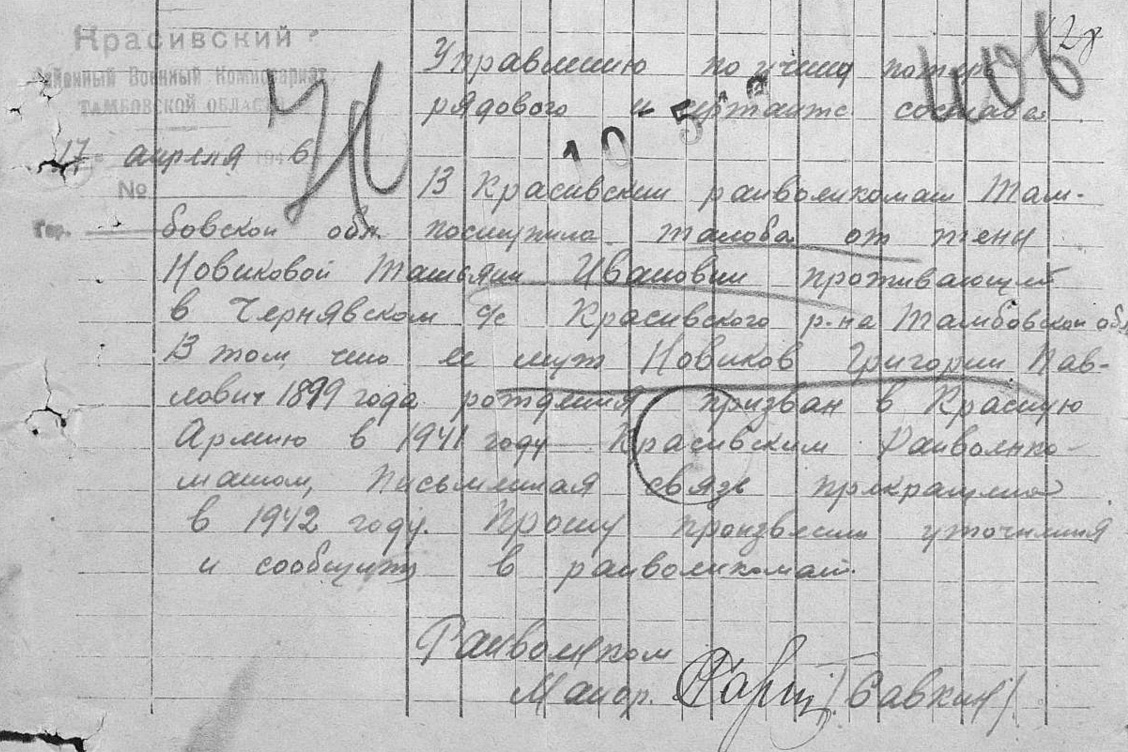 Красивский
Районный Военный Комиссариат
ТАМБОВСКОЙ ОБЛАСТИ
17 апреля 1946
№
Гор.
12
Управлению по учету потерь
рядового и сержантс. состава
10-5
В Красивский райвоенкомат Там-
бовской обл. поступила жалоба от жены
Новиковой Татьяны Ивановны проживающей
в Чернявском с/с Красивского р-на Тамбовской обл
В том, что ее муж Новиков Григорий Пав-
лович 1899 года рождения призван в Красную
Армию в 1941 году Красивским Райвоенко-
матом, Письменная связь прекращена
в 1942 году. Прошу произвести уточнения
и сообщить в райвоенкомат.
Райвоенком
Майор. /Савкин/